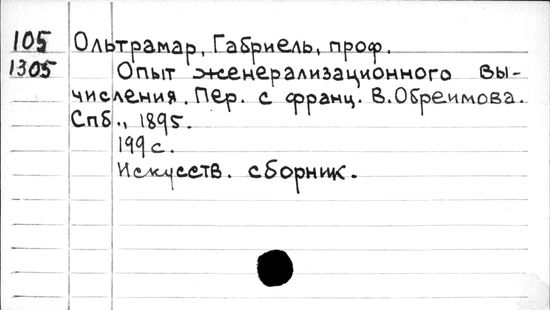 105 Ольтрамар, Габриель, проф.
1305 Опыт женерализационного вы-
числения. Пер. с франц. В.Обреимова.
Спб., 1895.
199 с.
Искусств. сборник.